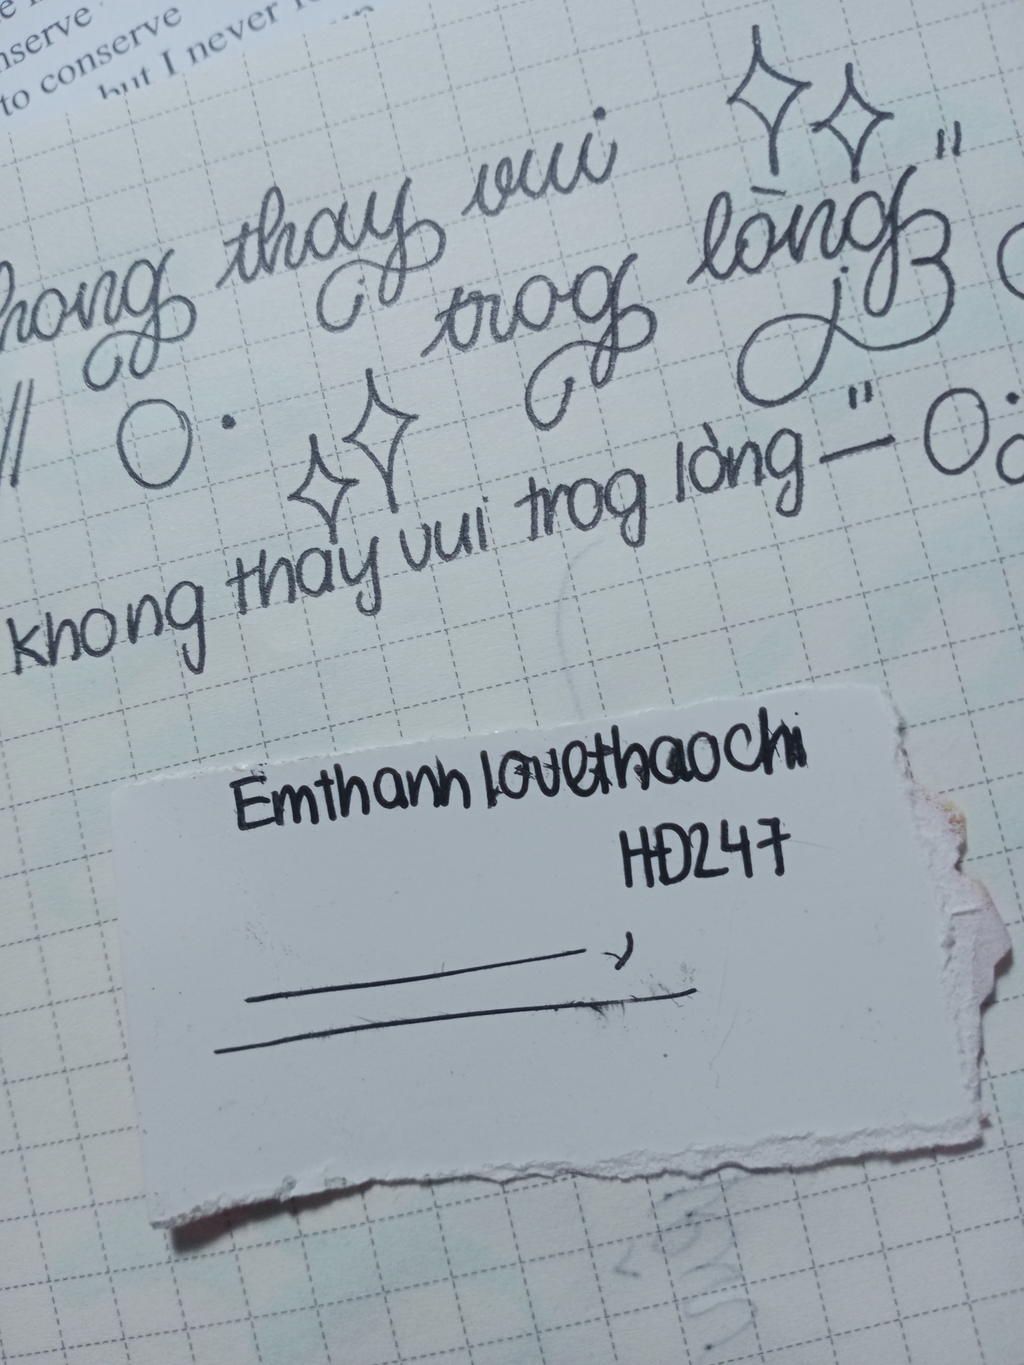 nserve
to conserve
but I never
hong thay vui
trog lòng"
không thay vui trog lòng
Emthanh lovethaochi
HĐ247